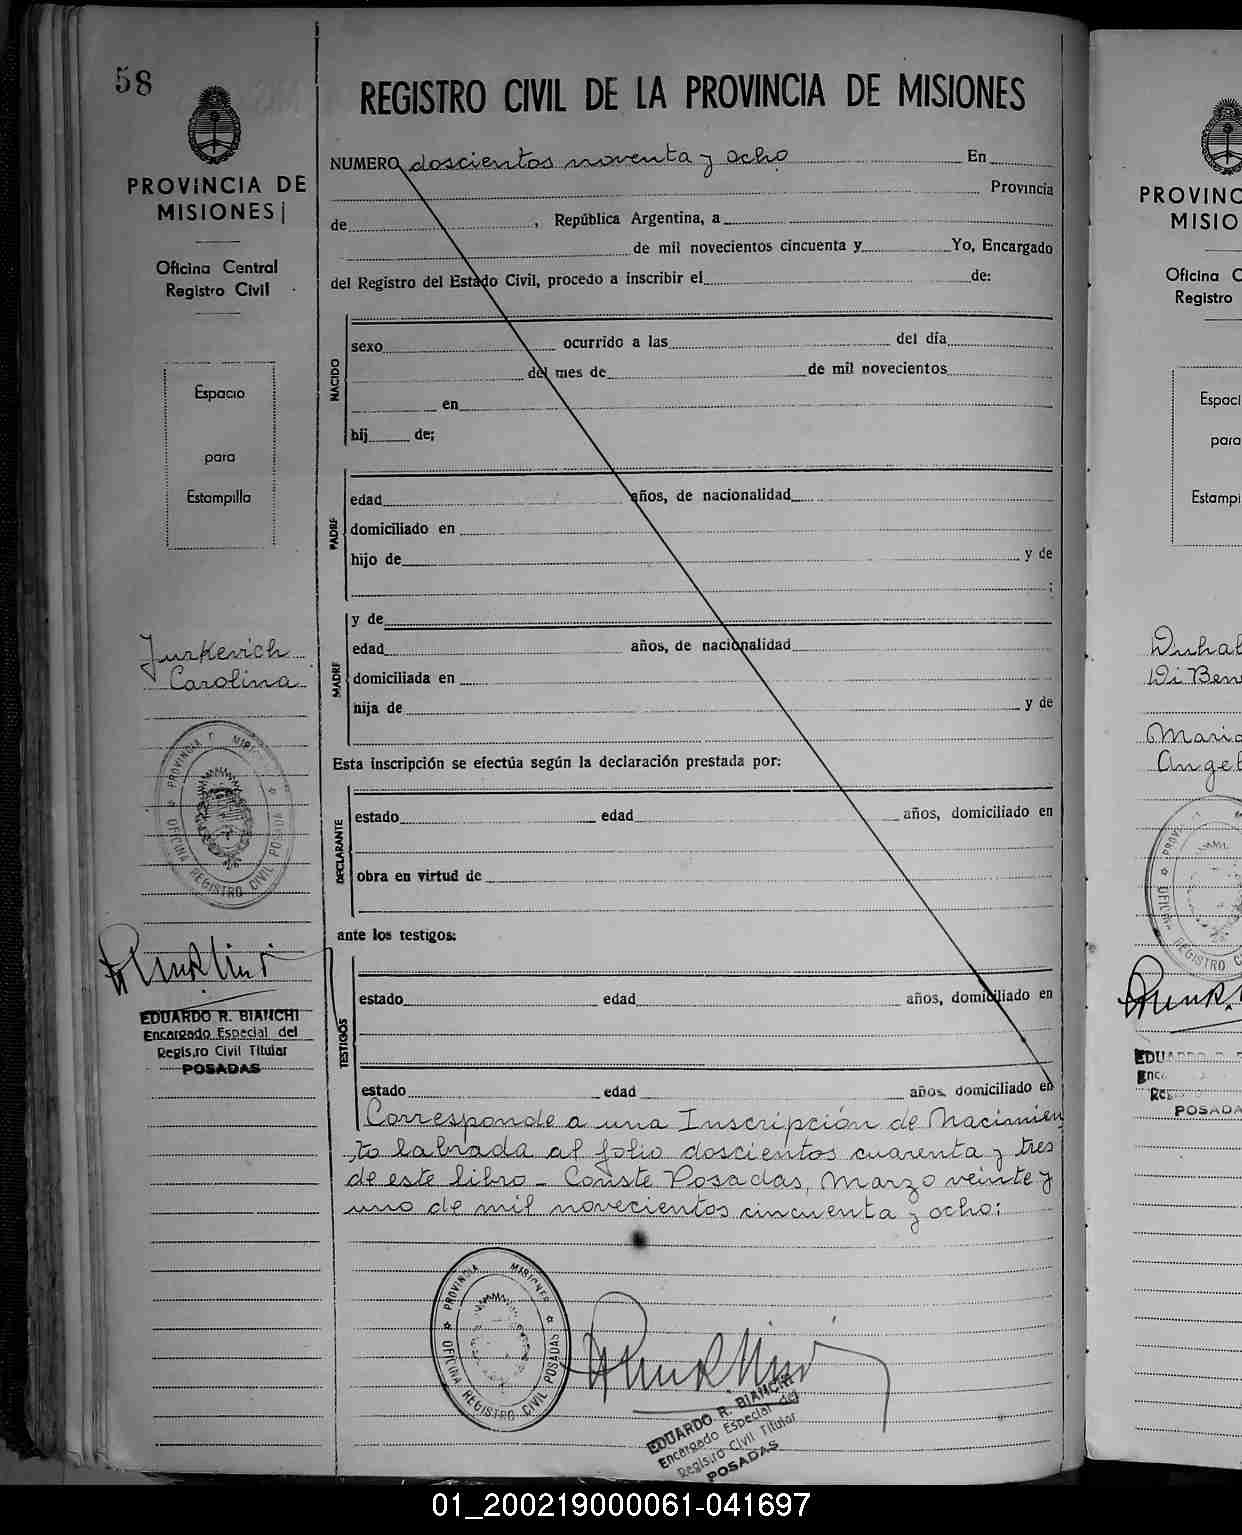 58
PROVINCIA DE
MISIONES
Oficina Central
Registro Civil
Espacio
para
Estampilla
Jurkevich
Carolina
PROVINCIA MISIONES
OFICINA REGISTRO CIVIL POSADAS
EDUARDO R. BIANCHI
Encargado Especial del
Regis,ro Civil Titular
POSADAS
REGISTRO CIVIL DE LA PROVINCIA DE MISIONES
NUMERO doscientos noventa y ocho En
Provincia
de , República Argentina, a
de mil novecientos cincuenta y Yo, Encargado
del Registro del Estado Civil, procedo a inscribir el de:
NACIDO
sexo ocurrido a las del día
del mes de de mil novecientos
en
hij de;
PADRE
edad años, de nacionalidad
domiciliado en
hijo de y de
;
MADRE
y de
edad años, de nacionalidad
domiciliada en
hija de y de
Esta inscripción se efectúa según la declaración prestada por:
DECLARANTE
estado edad años, domiciliado en
obra en virtud de
ante los testigos:
TESTIGOS
estado edad años, domiciliado en
estado edad años, domiciliado en
Corresponde a una Inscripción de Nacimien
to labrada al folio doscientos cuarenta y tres
de este libro - Conste Posadas, Marzo veinte y
uno de mil novecientos cincuenta y ocho:
PROVINCIA MISIONES
OFICINA REGISTRO CIVIL POSADAS
EDUARDO R. BIANCHI
Encargado Especial del
Regis,ro Civil Titular
POSADAS
PROVINC
MISIO
Oficina C
Registro
Espaci
para
Estampi
Di Ben
Maria
Angel
REGISTRO
OFICIN
EDU
Enc
POSADA
01_200219000061-041697